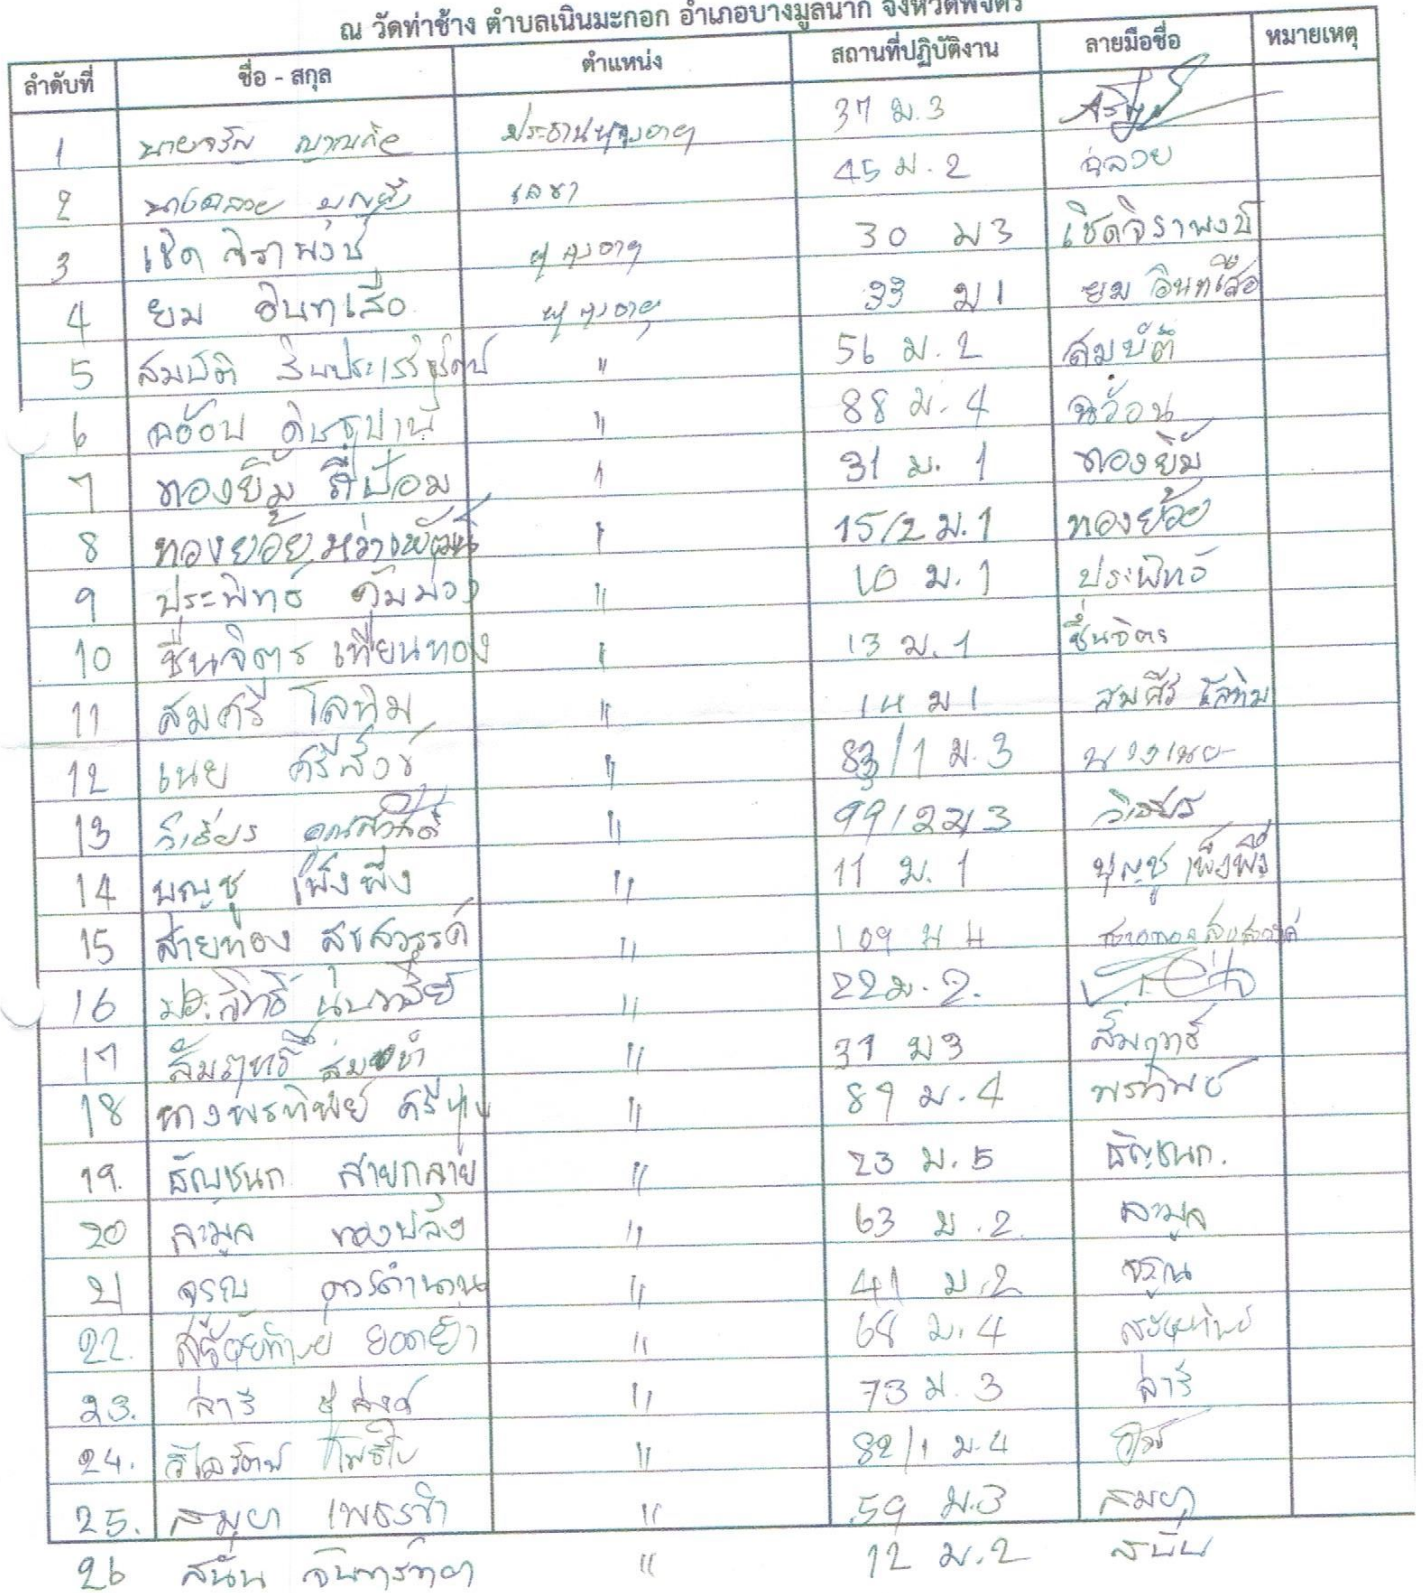 ณ วัดท่าช้าง ตำบลเนินมะกอก อำเภอบางมูลนาก จังหวัดพิจิตร
ลำดับที่ ชื่อ - สกุล ตำแหน่ง สถานที่ปฏิบัติงาน ลายมือชื่อ หมายเหตุ
1 นายจรัญ ประธานผู้สูงอายุ 37 ม.3
2 นางฉลวย บุญยัง เลขา 45 ม.2 ฉลวย
3 เชิด จิราพงษ์ ผู้สูงอายุ 30 ม3 เชิดจิราพงษ์
4 ยม อินทเสือ ผู้สูงอายุ 33 ม1 ยม อินทเสือ
5 สมบัติ " 56 ม.2 สมบัติ
6 " 88 ม.4
7 ทองยิ้ม สีป้อม " 31 ม.1 ทองยิ้ม
8 ทองย้อย หว่างพัฒน์ " 15/2 ม.1 ทองย้อย
9 ประพิทธ์ " 10 ม.1 ประพิทธ์
10 ชื่นจิตร เทียนทอง " 13 ม.1 ชื่นจิตร
11 สมศรี โลทิม " 14 ม1 สมศรี โลทิม
12 เนย ศรีสงข์ " 83/1 ม.3 นางเนย
13 วิเชียร " 99/2 ม3 วิเชียร
14 บุญชู เพ็งพึ่ง " 11 ม.1 บุญชู เพ็งพึ่ง
15 สายทอง สุขสวรรค์ " 109 ม4 สายทอง สุขสวรรค์
16 ประสิทธิ์ " 22 ม.2.
17 สัมฤทธิ์ " 31 ม3 สัมฤทธิ์
18 นางพรทิพย์ " 89 ม.4 พรทิพย์
19. ธัญชนก สายกลาย " 23 ม.5 ธัญชนก.
20 ละมูล ทองปลั่ง " 63 ม.2 ละมูล
21 จรูญ ถาวรตำนาน " 41 ม.2 จรูญ
22. " 68 ม.4
23. สำรี " 73 ม.3 สำรี
24. วิไลรัตน์ โพธิ์ใบ " 82/1 ม.4
25. สมยา เพชรขำ " 59 ม.3 สมยา
26 สนั่น จันทร์ทยา " 12 ม.2 สนั่น